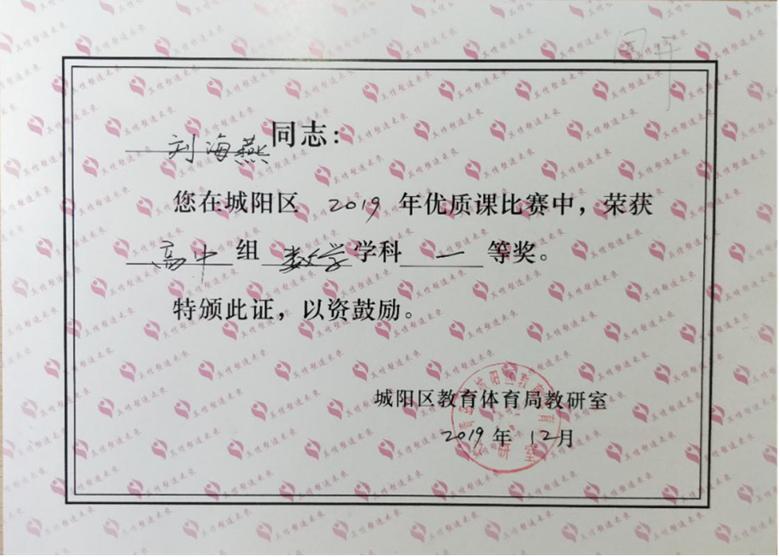 刘海燕同志：
您在城阳区 2019 年优质课比赛中，荣获
高中组数学学科一等奖。
特颁此证，以资鼓励。
城阳区教育体育局教研室
2019年12月